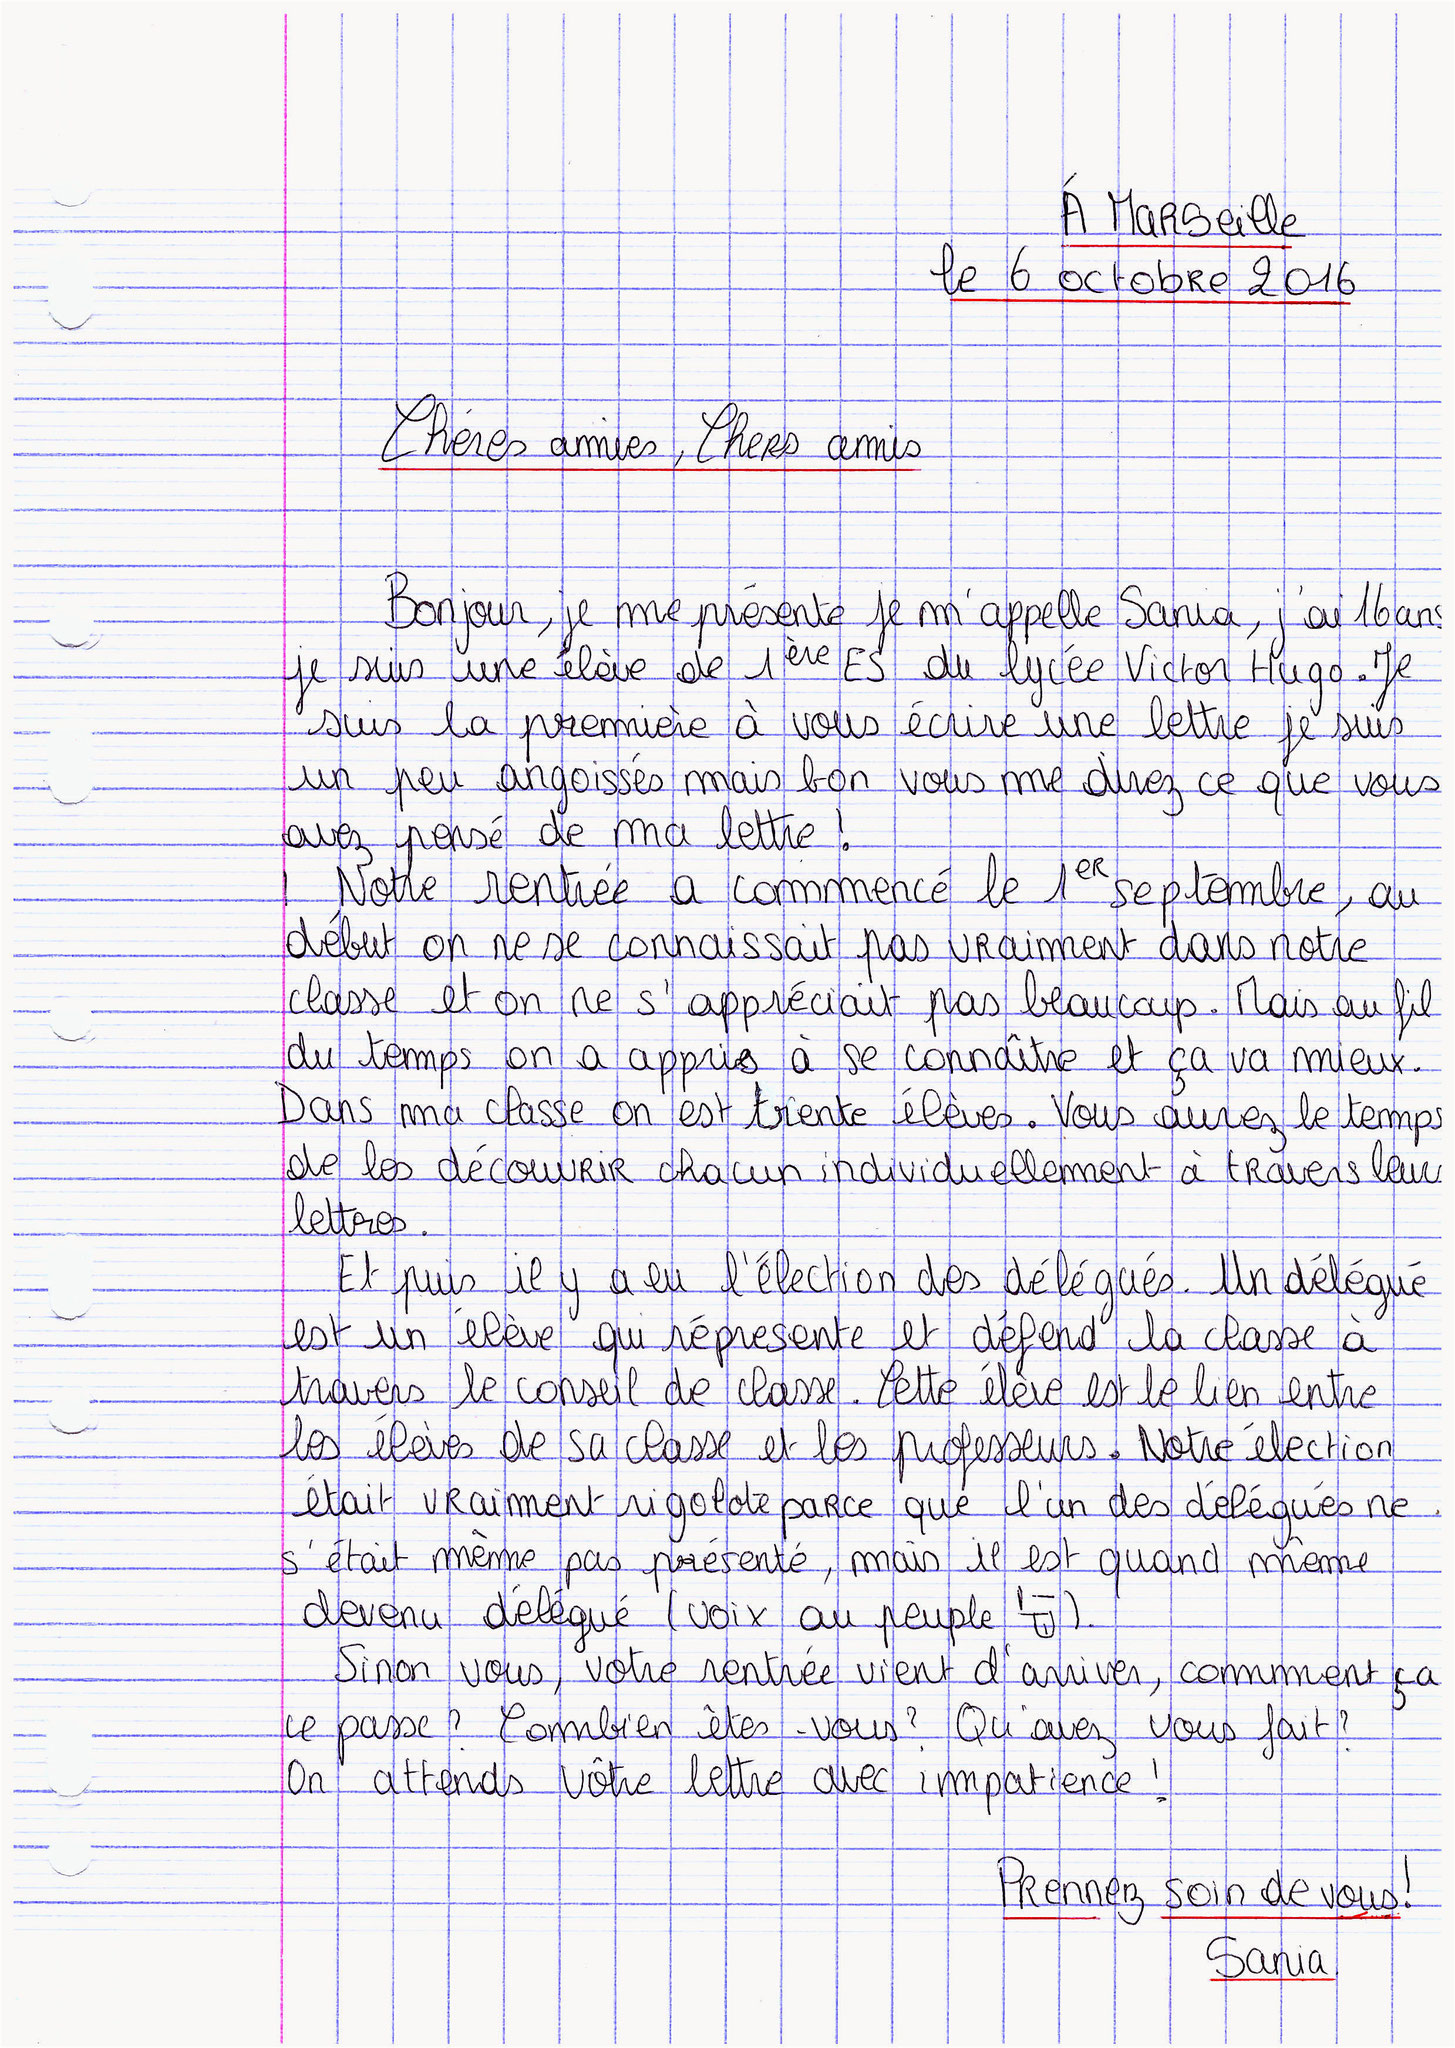 Á Marseille
le 6 octobre 2016
Chéres amies, Chers amis
Bonjour, je me présente je m'appelle Sania, j'ai 16 ans
je suis une élève de 1ère ES du lycée Victor Hugo. Je
suis la première à vous écrire une lettre je suis
un peu angoissés mais bon vous me direz ce que vous
avez pensé de ma lettre !
Notre rentrée a commencé le 1er septembre, au
début on ne se connaissait pas vraiment dans notre
classe et on ne s'appréciait pas beaucoup. Mais au fil
du temps on a appris à se connaître et ça va mieux.
Dans ma classe on est trente élèves. Vous aurez le temps
de les découvrir chacun individuellement à travers leur
lettres.
Et puis il y a eu l'élection des délégués. Un délégué
est un élève qui répresente et défend la classe à
travers le conseil de classe. Cette élève est le lien entre
les élèves de sa classe et les professeurs. Notre élection
était vraiment rigolote parce que l'un des délégués ne
s'était même pas présenté, mais il est quand même
devenu délégué (voix au peuple ).
Sinon vous, votre rentrée vient d'arriver, comment ça
ce passe ? Combien êtes-vous ? Qu'avez vous fait ?
On attends vôtre lettre avec impatience !
Prennez soin de vous !
Sania